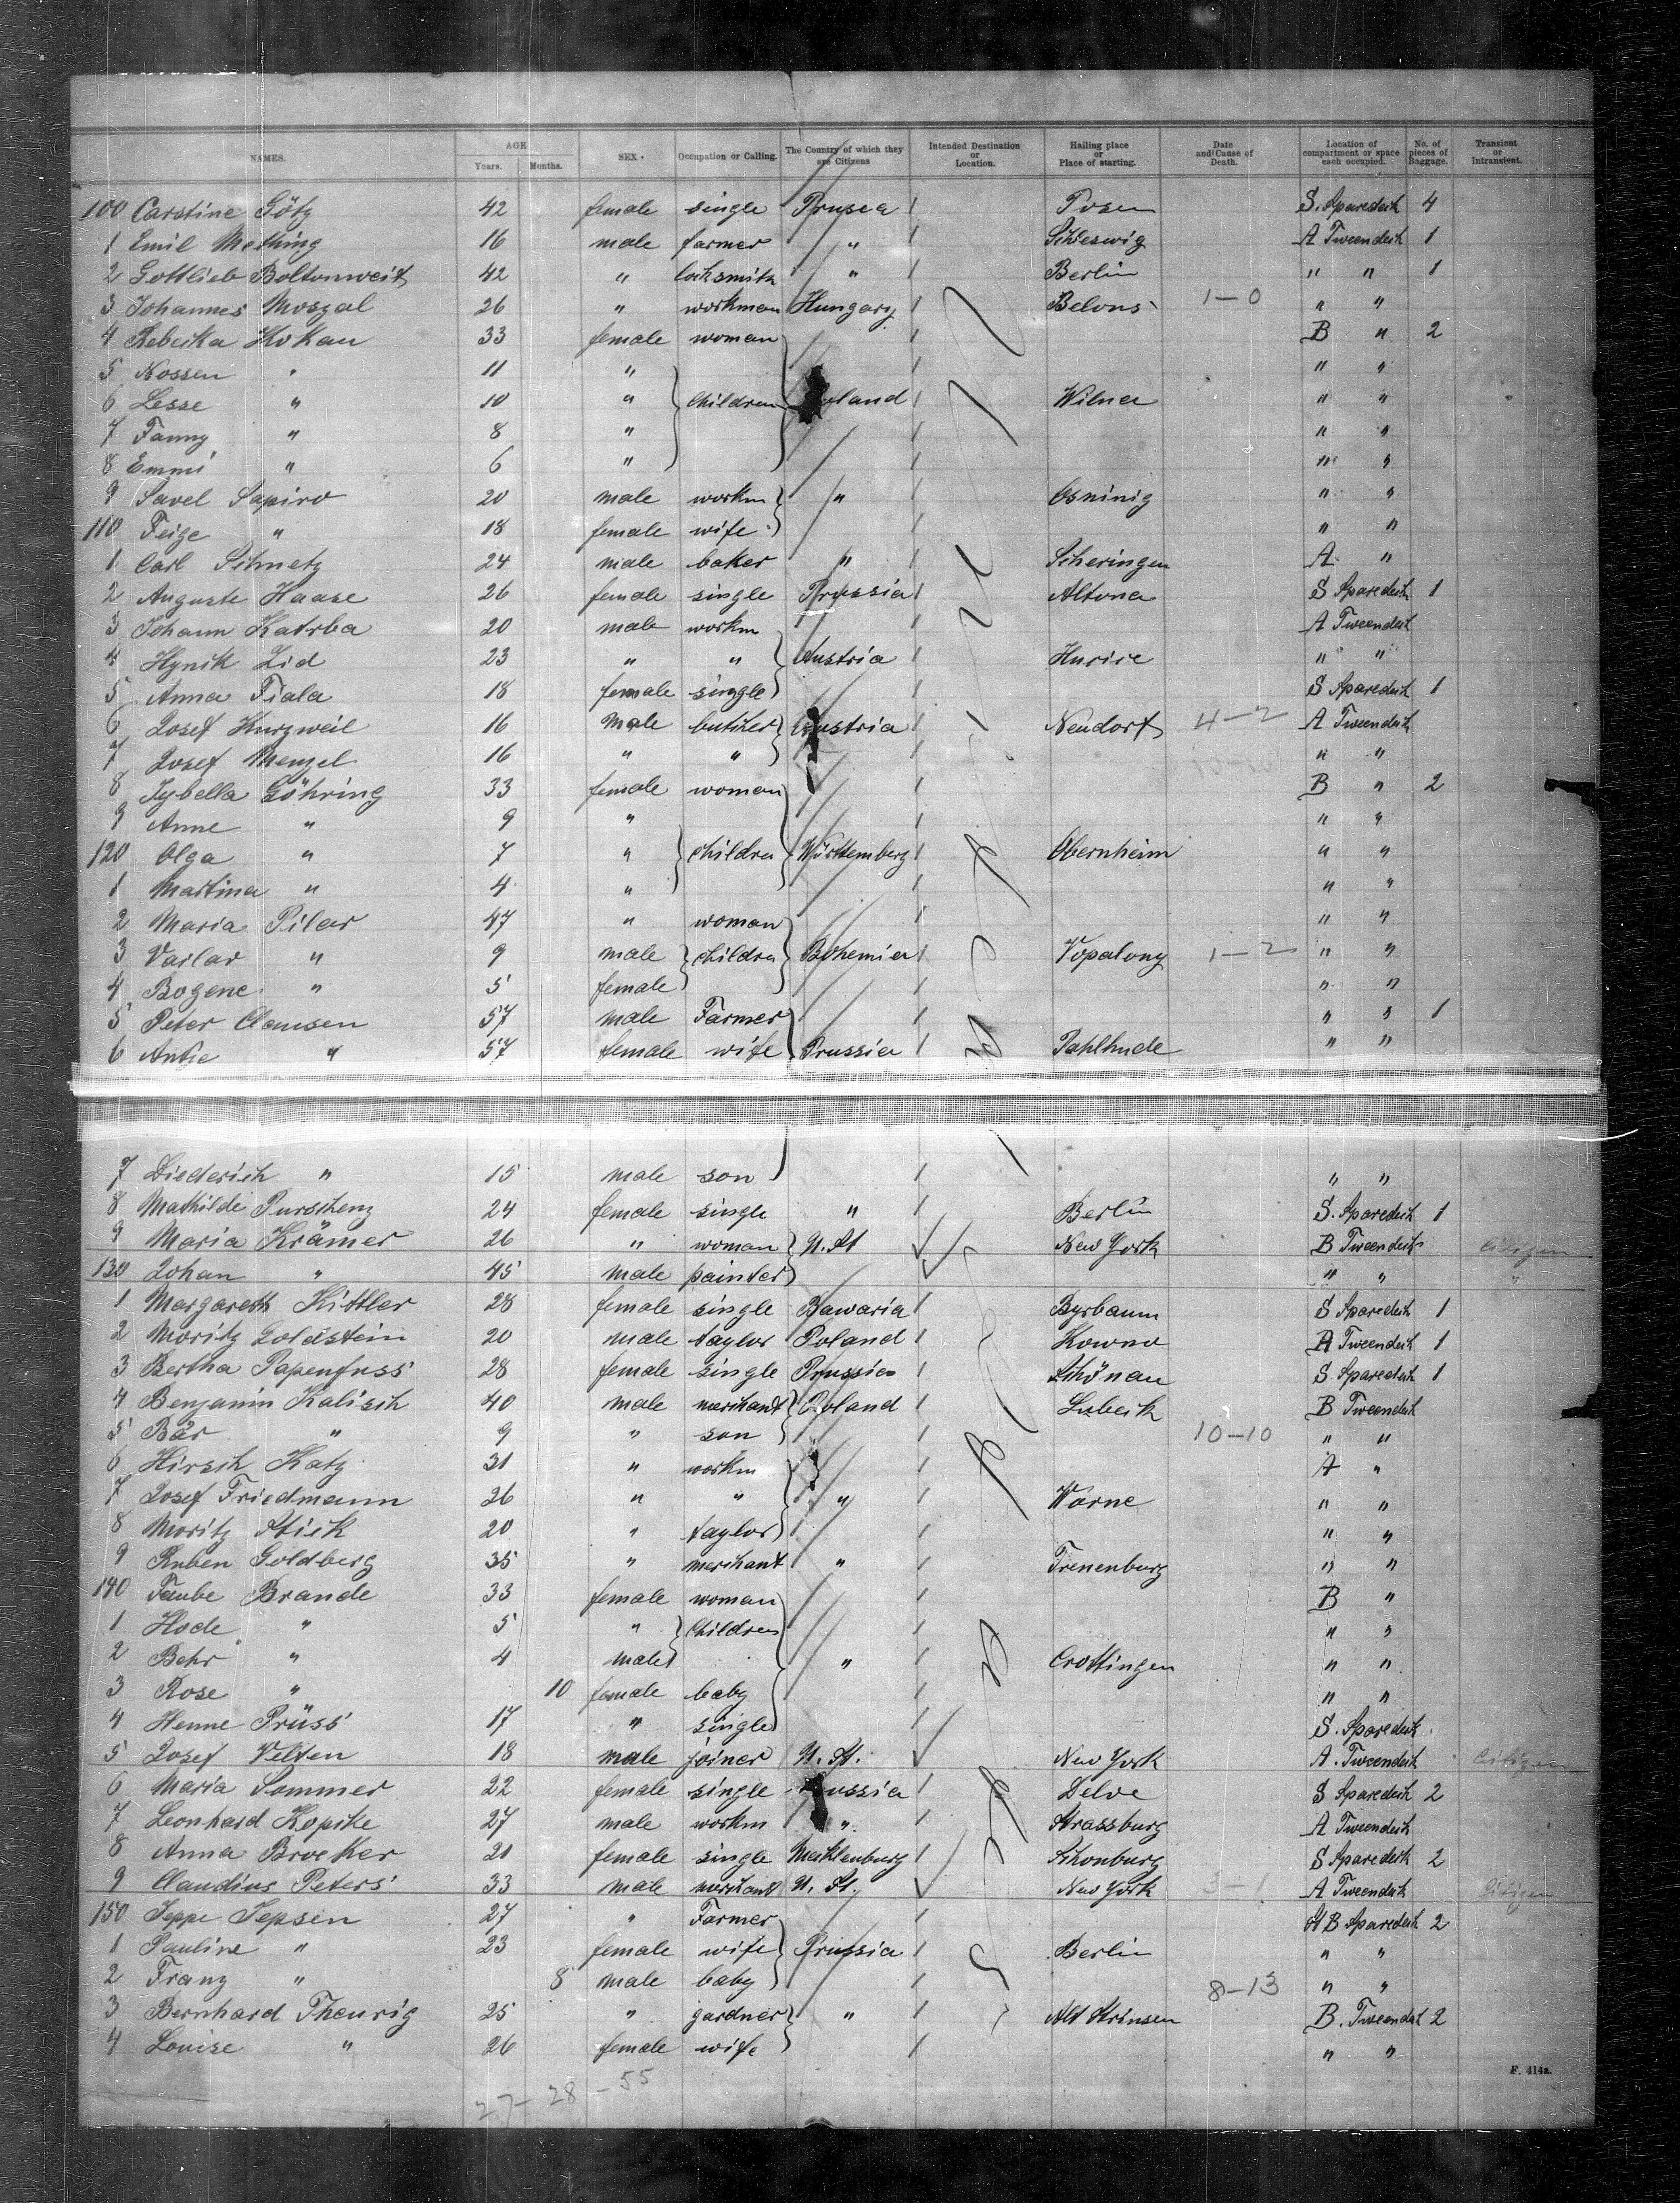 NAMES. AGE Years. Months. SEX. Occupation or Calling. The Country of which they are Citizens Intended Destination or Location. Hailing place or Place of starting. Date and Cause of Death. Location of compartment or space each occupied. No. of pieces of Baggage. Transient or Intransient.
100 Carstine Götz 42 female single Prussia / Posen S. Sparedeck 4
1 Emil Mothing 16 male farmer " / Schleswig A Tweendeck 1
2 Gottlieb Boltonweit 42 " locksmith " / Berlin " " 1
3 Johannes Moszal 26 " workman Hungary / Belons 1-0 " "
4 Rebecka Hokan 33 female woman / B " 2
5 Nossen " 11 " / " "
6 Lesse " 10 " Children Poland / Wilna " "
7 Fanny " 8 " / " "
8 Emmi " 6 " / " "
9 Savel Sapiro 20 male workm " / Osninig " "
110 Feige " 18 female wife / " "
1 Carl Schmetz 24 male baker " / Scheringen A "
2 Auguste Haase 26 female single Prussia / Altona S Sparedeck 1
3 Johann Katrba 20 male workm / A Tweendeck
4 Hynik Zid 23 " " Austria / Huric " "
5 Anna Fiala 18 female single / S Sparedeck 1
6 Josef Kurzweil 16 male butcher Austria / Neudorf 4-2 A Tweendeck
7 Josef Menzel 16 " " / " "
8 Sybella Göhring 33 female woman / B " 2
9 Anne " 9 " / " "
120 Olga " 7 " children Württemberg / Obernheim " "
1 Martina " 4 " / " "
2 Maria Pilar 47 " woman / " "
3 Varlav " 9 male children Bohemia / Vopalony 1-2 " "
4 Bogene " 5 female / " "
5 Peter Clausen 57 male Farmer / " " 1
6 Antje " 57 female wife Prussia / Pahlhude " "
7 Diederich " 15 male son / " "
8 Mathilde Purschenz 24 female single " / Berlin S. Sparedeck 1
9 Maria Krämer 26 " woman U. St ✓ New York B Tweendeck Citizen
130 Johan " 45 male painter ✓ " " "
1 Margareth Kittler 28 female single Bawaria / Byrbaum S Sparedeck 1
2 Moritz Goldstein 20 male taylor Poland / Kowno A Tweendeck 1
3 Bertha Papenfuss 28 female single Prussia / Schönau S Sparedeck 1
4 Benjamin Kalisch 40 male merchant Poland / Lubeck B Tweendeck
5 Bär " 9 " son / 10-10 " "
6 Hirsch Katz 31 " workm / A "
7 Josef Friedmann 26 " " " / Worne " "
8 Moritz Stick 20 " taylor / " "
9 Ruben Goldberg 35 " merchant " / Trenenburg " "
140 Taube Brande 33 female woman / B "
1 Hode " 5 " Children / " "
2 Behr " 4 male " / Crottingen " "
3 Rose " 10 female baby / " "
4 Henne Prüss 17 " single / S. Sparedeck
5 Josef Velten 18 male joiner U. St. ✓ New York A. Tweendeck Citizen
6 Maria Sommer 22 female single Prussia / Delve S Sparedeck 2
7 Leonhard Kopske 27 male workm " / Strassburg A Tweendeck
8 Anna Broeker 21 female single Mecklenburg / Schonburg S Sparedeck 2
9 Claudius Peters 33 male merchant U. St. ✓ New York 3-1 A Tweendeck Citizen
150 Jeppe Jepsen 27 " Farmer / St B Sparedeck 2
1 Pauline " 23 female wife Prussia / Berlin " "
2 Franz " 8 male baby / 8-13 " "
3 Bernhard Theurig 25 " gardner " / Alt Strinsen B. Tweendeck 2
4 Louise " 26 female wife / " "
27-28-55
F. 414a.